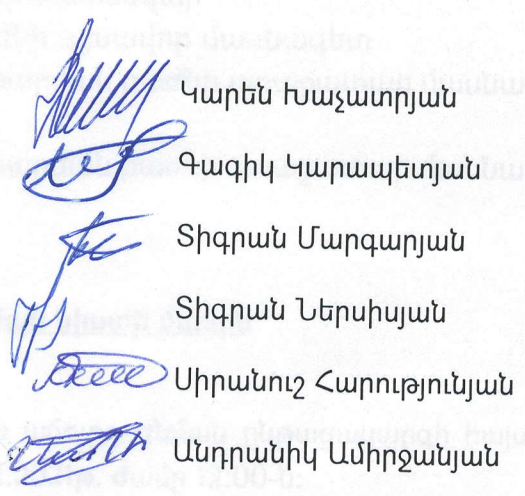 Կարեն Խաչատրյան
Գագիկ Կարապետյան
Տիգրան Մարգարյան
Տիգրան Ներսիսյան
Սիրանուշ Հարությունյան
Անդրանիկ Ամիրջանյան